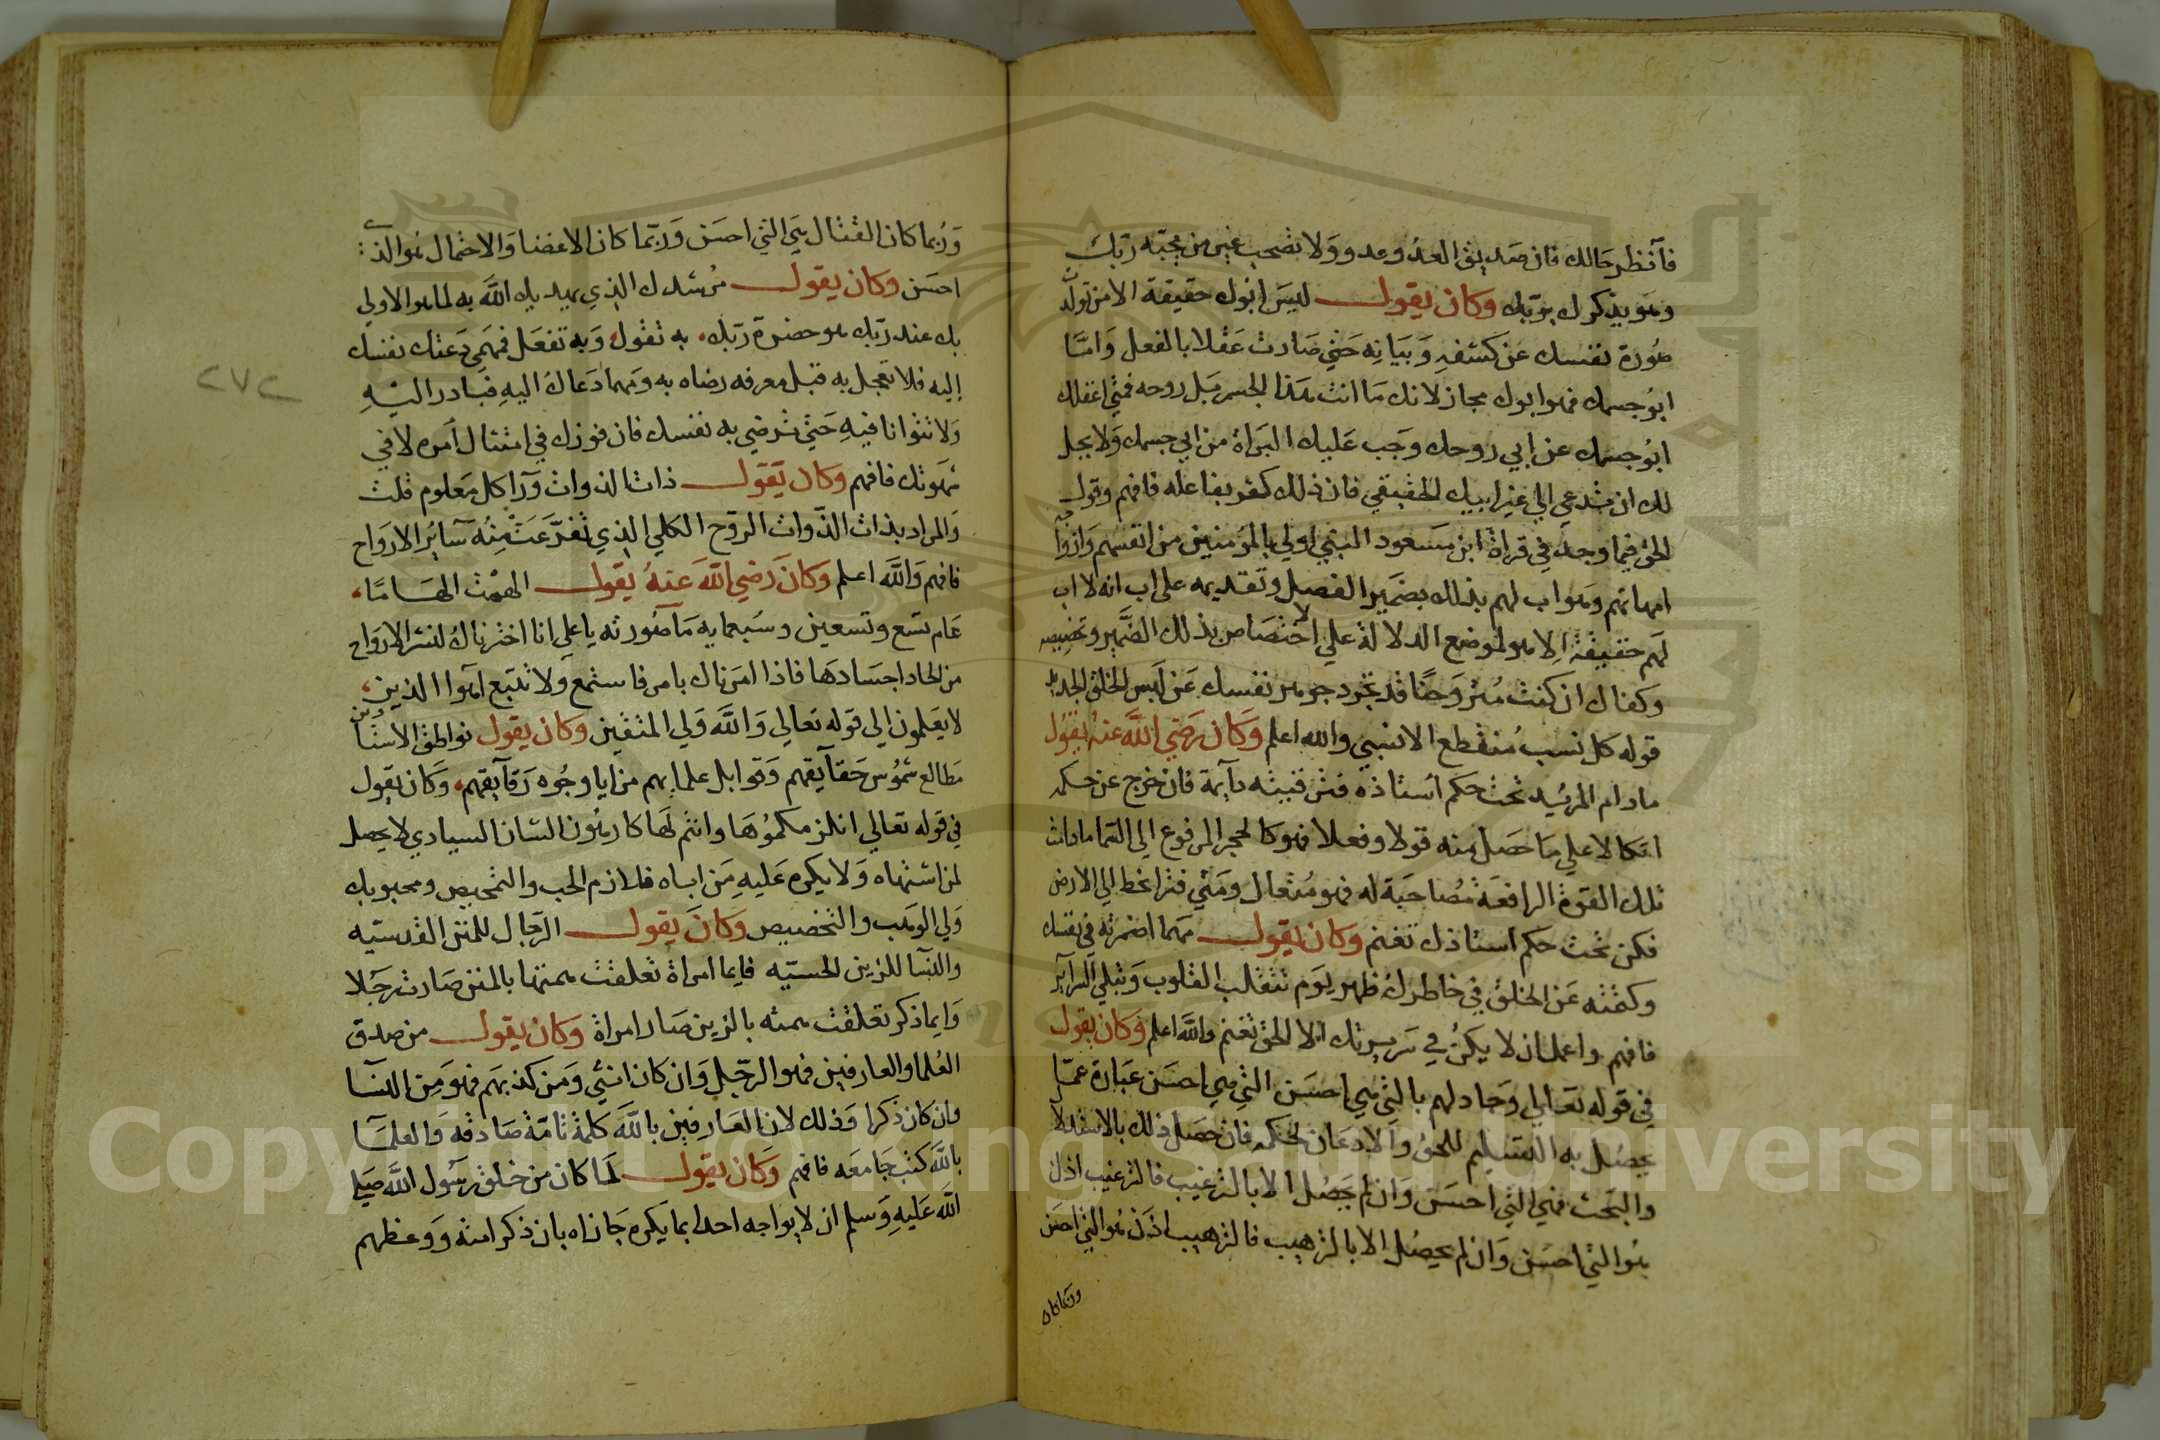 فآنظر حالك فان صديق العدو عدو ولا تصحب غير من يحبه ربك
وهو يذكرك بربك وكان يقول ليس ابوك حقيقة الا من تولّد
صورة نفسك عن كشفه وبيانه حتي صارت عقلا بالفعل وامّا
ابو جسمك فهو ابوك مجاز لانك ما انت هذا الجسم بل روحه فمتي اغفلك
ابو جسمك عن ابي روحك وجب عليك البرأة من ابي جسمك ولا يحل
لك ان تدعي الي غير ابيك الحقيقي فان ذلك كفر بفاعله فافهم وقول
الحق فيما وجد في قراة ابن مسعود النبي اولي بالمؤمنين من انفسهم وازوا
امهاتهم وهو اب لهم بذلك بضمير الفصل وتقديمه علي اب انه لا اب
لهم حقيقة الا هو لموضع الدلالة علي الاختصاص بذلك الضمير وتخصيصه
وكفاك ان كنت متروحنا قد تجرد جوهر نفسك عن لبس الخلق الجديد
قوله كل نسب منقطع الا نسبي والله اعلم وكان رضي الله عنه يقول
مادام المريد تحت حكم استاذه فترقيته دآيمة فان خرج عن حكمه
اتكالا علي ما حصل منه قولا وفعلا فهو كالحجر المرفوع الي السما مادامت
تلك القوة الرافعة مصاحبة له فهو متعال ومتي فتر انحط الي الارض
فكن تحت حكم استاذك تغنم وكان يقول مهما اضمرته في نفسك
وكتمته عن الخلق في خاطرك ظهر يوم تتقلب القلوب وتبلي السرآير
فافهم واعمل ان لا يكن في سريرتك الا الحق تغنم والله اعلم وكان يقول
في قوله تعالي وجادلهم بالتي هي احسن التي هي احسن عبارة عمّا
يحصل به التسليم للحق والاذعان لحكمه فان حصل ذلك بالاستدلا
والبحث فهي التي احسن وان لم يحصل الا بالترغيب فالترغيب اذن
هو التي احسن وان لم يحصل الا بالترهيب فالترهيب اذن هو التي احسن
وربما كان
وربما كان القتال هي التي احسن وربّما كان الاغضا والاحتمال هو الذي
احسن وكان يقول مرشدك الذي يهديك الله به لما هو الاولي
بك عند ربك هو حضرة ربك به تقول وبه تفعل فمهمي دعتك نفسك
٢٧٢
إليه فلا تعجل به قبل معرفه رضاه به ومهما دعاك اليه فبادر اليه
ولا تتوانا فيه حتي ترضي به نفسك فان فوزك في امتثال أمره لا في
شهوتك فافهم وكان يقول ذات الذوات ورآ كل معلوم قلت
والمراد بذات الذوات الروح الكلي الذي تفرّعت منه سآير الارواح
فافهم والله اعلم وكان رضي الله عنه يقول الهمت الهامًا
عام تسع وتسعين وسبعمايه ما صورته يا علي انا اخترناك لنشر الارواح
من الحاد اجسادها فاذا امرناك بامر فاستمع ولا تتبع اهوا الذين
لا يعلمون الي قوله تعالي والله ولي المتقين وكان يقول نواطق الاستاذين
مطالع شموس حقآيقهم وقوابل علمايهم مزايا وجوه رقآيقهم وكان يقول
في قوله تعالي انلزمكموها وانتم لها كارهون الشان السيادي لا يحصل
لمن اشتهاه ولا يكره عليه من اباه فلازم الحب والتمحيص ومحبوبك
ولي الوهب والتخصيص وكان يقول الرجال للمنن القدسيّه
والنسآ للزين الحسيّه فايما امراة تعلقت همتها بالمنن صارت رجلا
وايما ذكر تعلقت همته بالزين صار امراة وكان يقول من صدق
العلما والعارفين فهو الرجل وان كان انثي ومن كذبهم فهو من النسآ
وان كان ذكرا وذلك لان العارفين بالله كلمة تامّة صادقه والعلمآ
بالله كتب جامعه فافهم وكان يقول لما كان من خلق رسول الله صلي
الله عليه وسلم ان لا يواجه احدا بما يكره جازاه بان ذكر امته ووعظهم